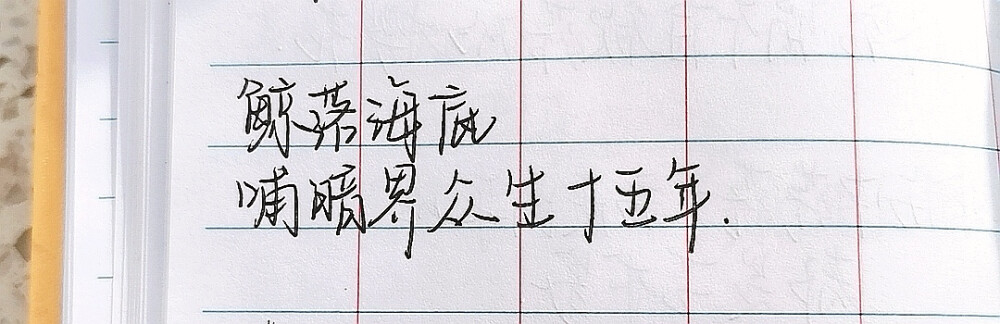 鲸落海底
哺暗界众生十五年.